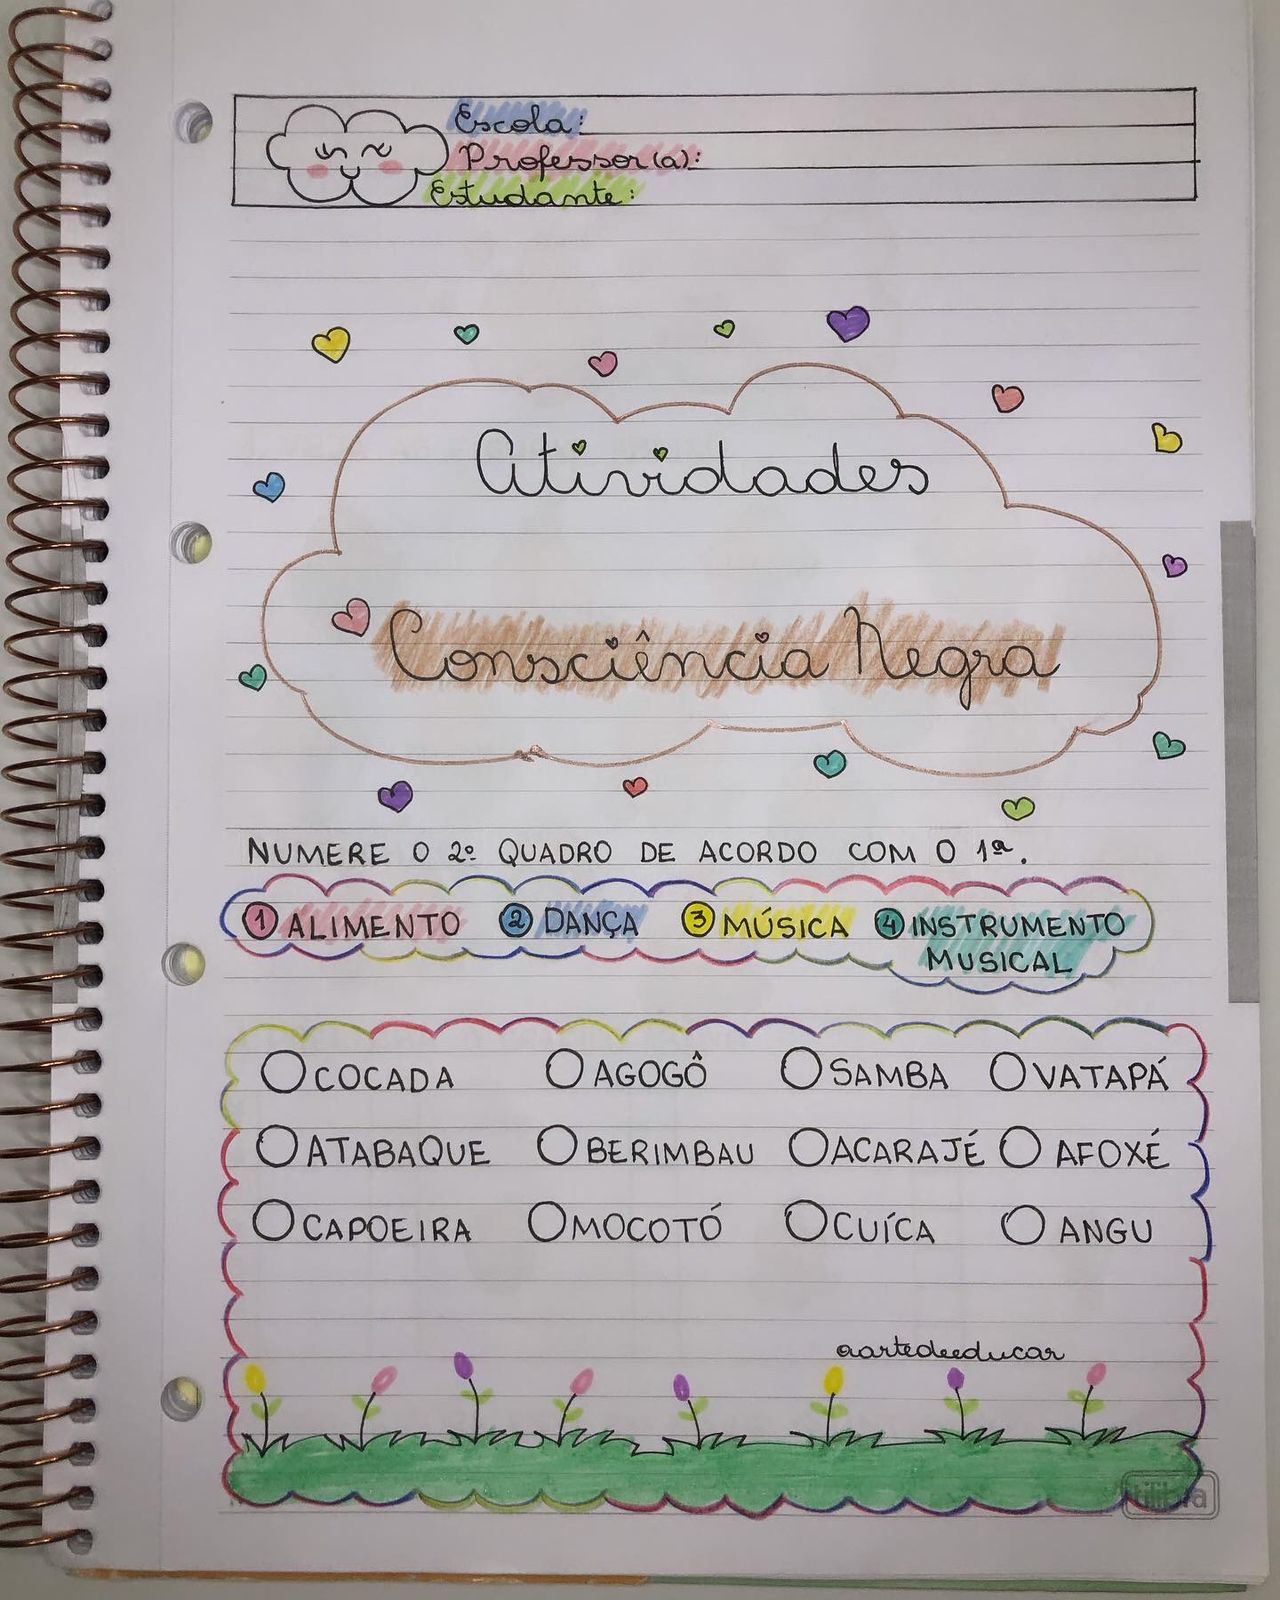 Escola:
Professor(a):
Estudante:
Atividades
Consciência Negra
NUMERE O 2º QUADRO DE ACORDO COM O 1ª.
1 ALIMENTO 2 DANÇA 3 MÚSICA 4 INSTRUMENTO
MUSICAL
COCADA AGOGÔ SAMBA VATAPÁ
ATABAQUE BERIMBAU ACARAJÉ AFOXÉ
CAPOEIRA MOCOTÓ CUÍCA ANGU
@artedeeducar
tilibra